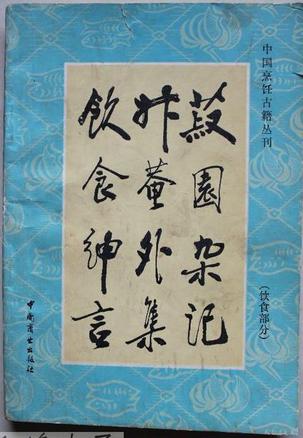 中国烹饪古籍丛刊
菽園杂记
升菴外集
飲食紳言
(饮食部分)
中国商业出版社